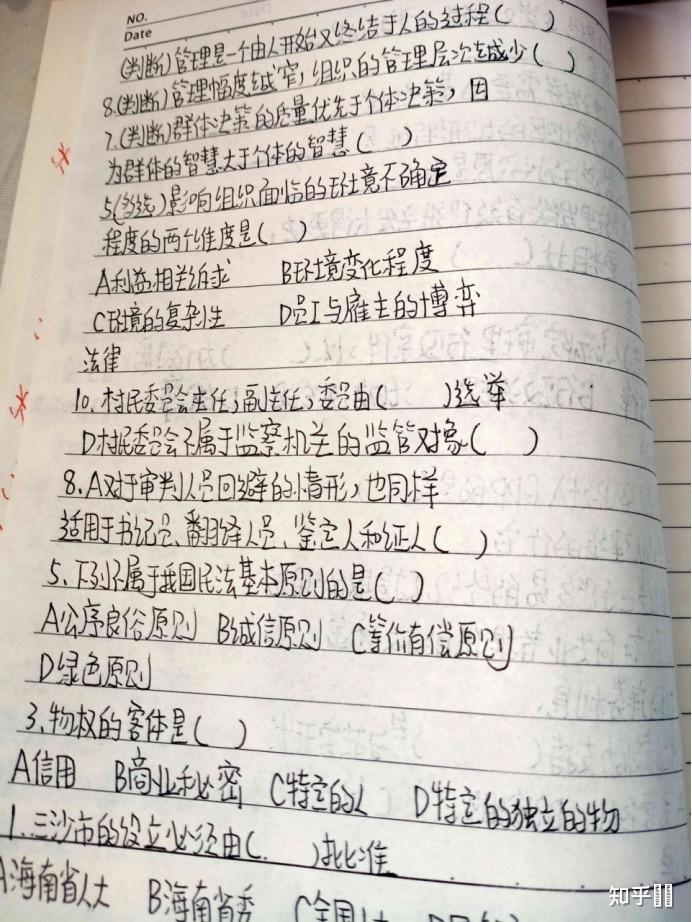 NO.
Date
(判断)管理是一个由人开始又终结于人的过程( )
8.(判断)管理幅度越窄,组织的管理层次越少( )
7.(判断)群体决策的质量优先于个体决策,因
为群体的智慧大于个体的智慧( )
5(多选)影响组织面临的环境不确定
程度的两个维度是( )
A利益相关诉求 B环境变化程度
C环境的复杂性 D员工与雇主的博弈
法律
10.村民委员会主任,副主任,委员由( )选举
D村民委员会不属于监察机关的监管对象( )
8.A对于审判人员回避的情形,也同样
适用于书记员、翻译人员、鉴定人和证人( )
5.下列不属于我国民法基本原则的是( )
A公序良俗原则 B诚信原则 C等价有偿原则
D绿色原则
3.物权的客体是( )
A信用 B商业秘密 C特定的人 D特定的独立的物
1.三沙市的设立必须由( )批准
A海南省人大 B海南省委 C全国人大
知乎